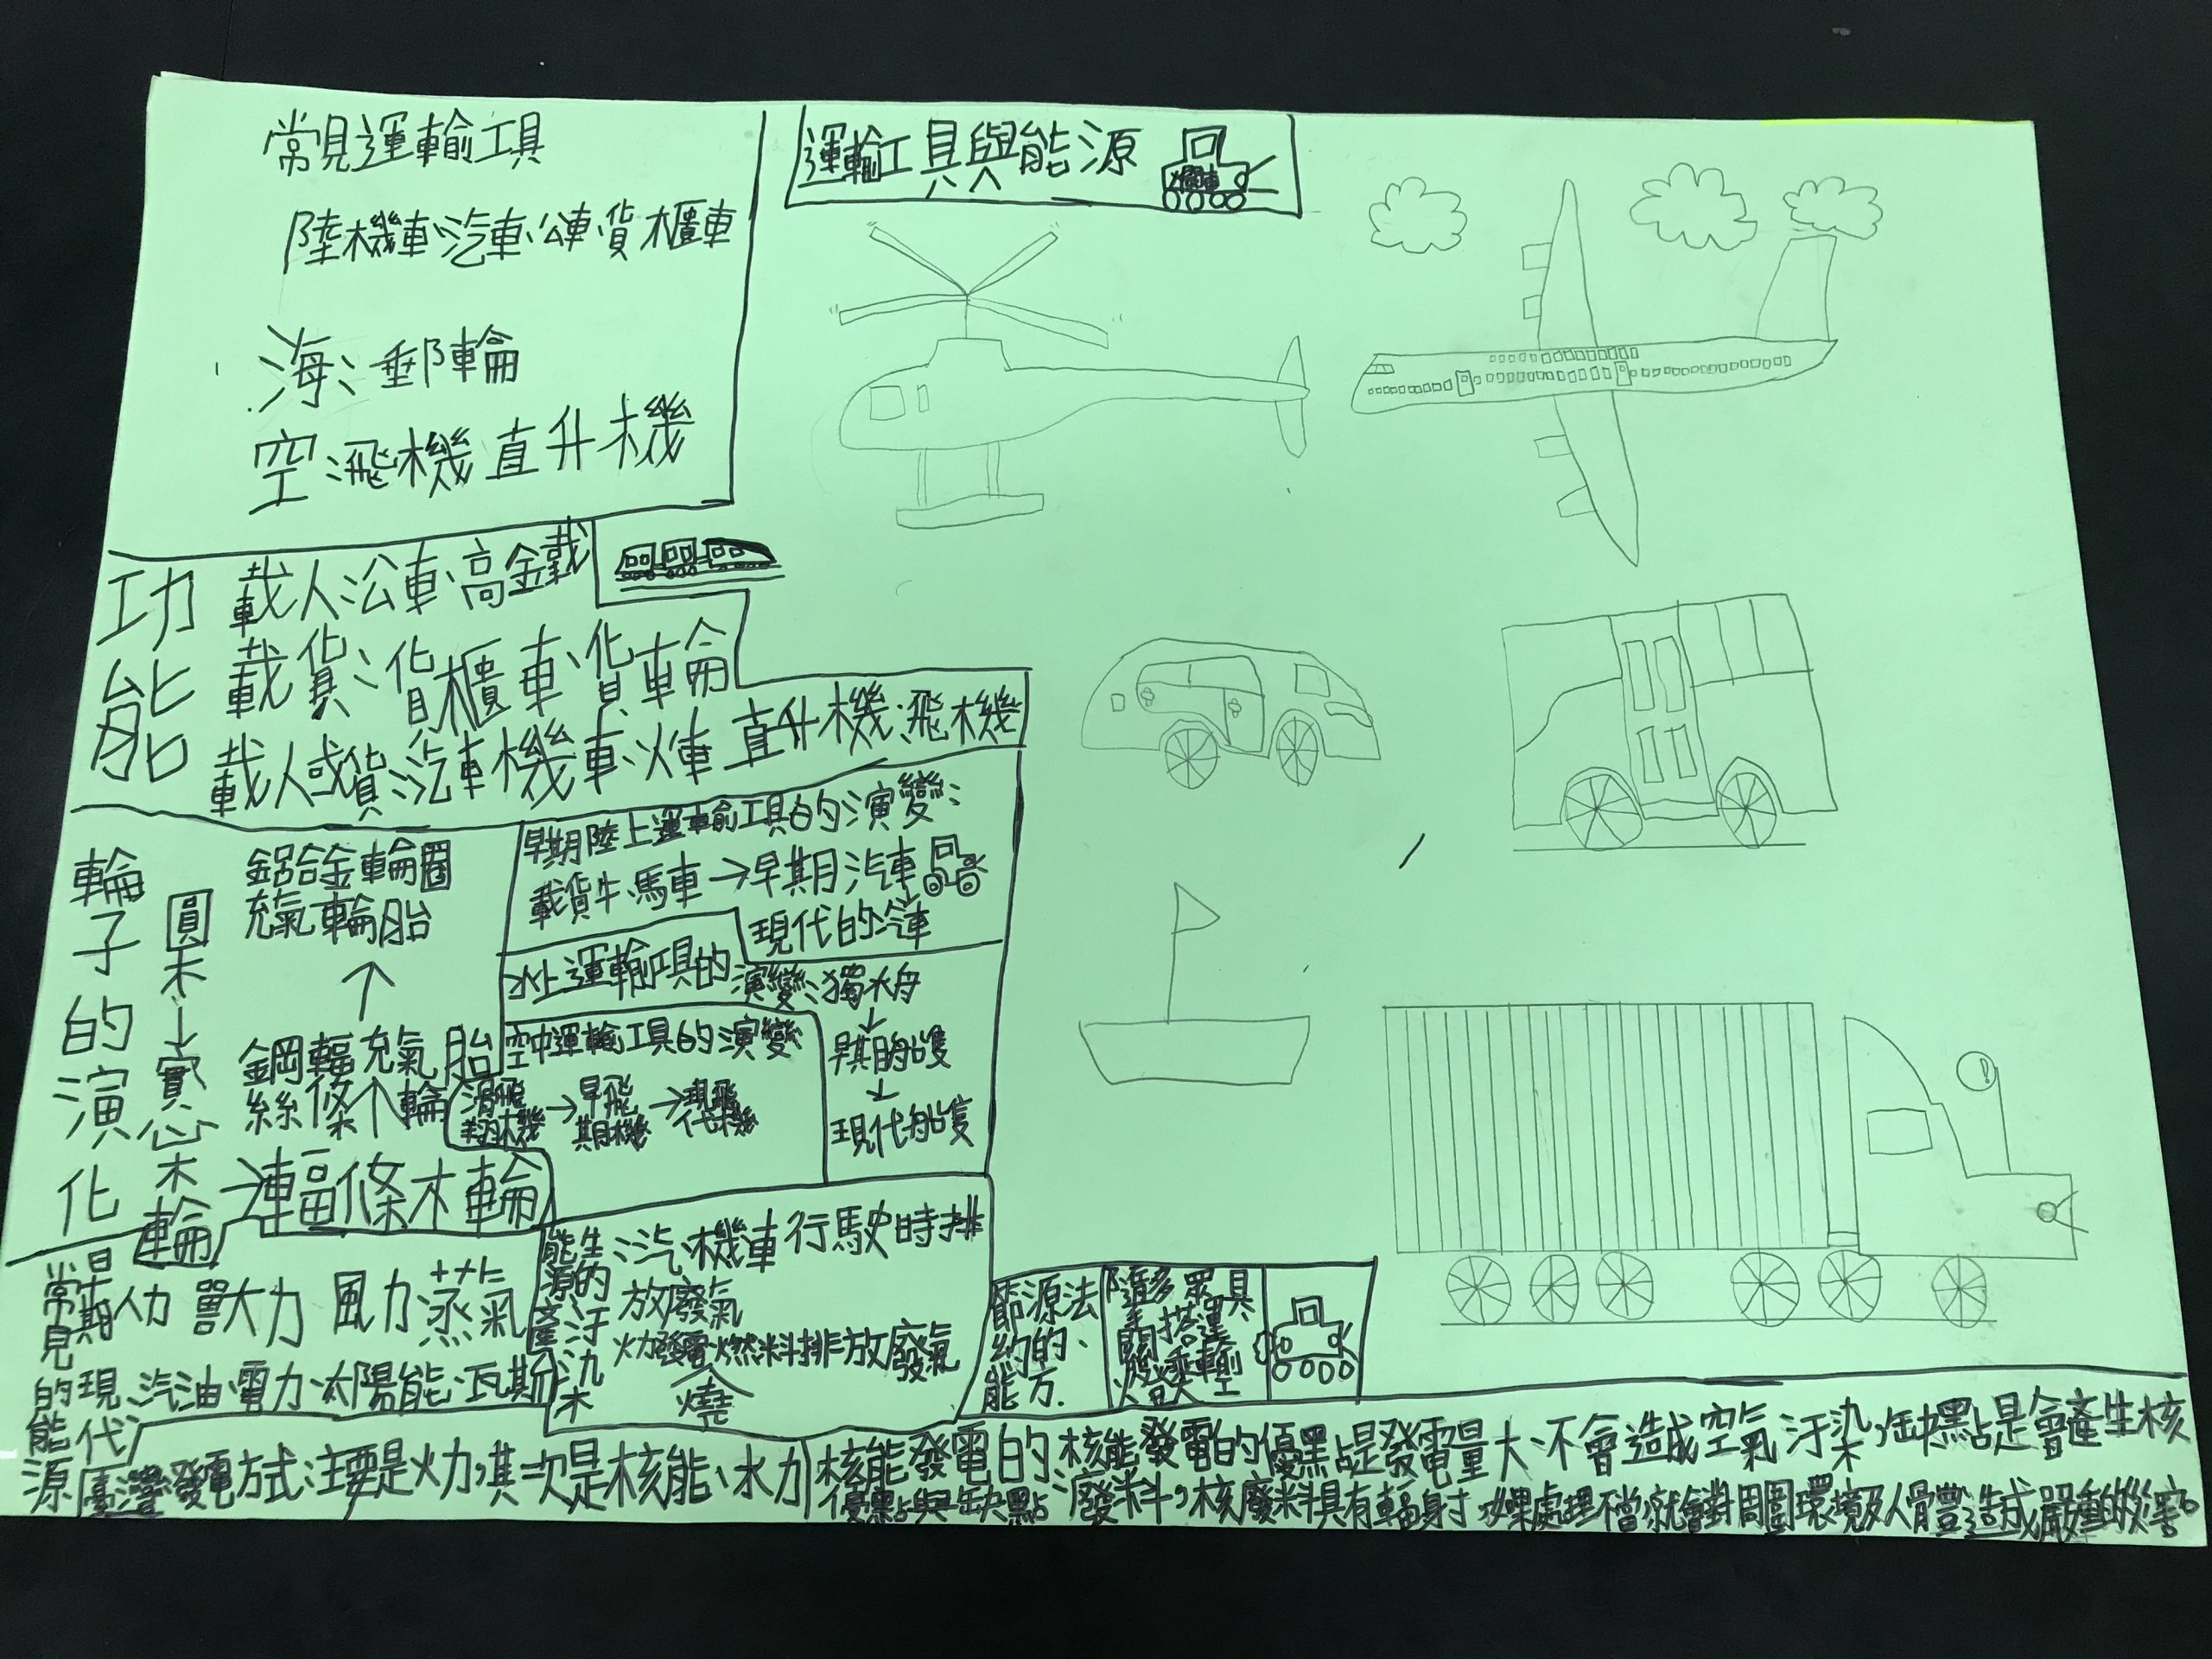 運輸工具與能源
常見運輸工具
陸機車、汽車、公車、貨櫃車
海:郵輪
空:飛機直升機
功能
載人:公車、高鐵
載貨:貨櫃車、貨輪
載人或貨:汽車、機車、火車、直升機、飛機
輪子的演化
圓木→實心木輪→連輻條木輪
↑
鋼絲輻條充氣輪胎
↑
鋁合金輪圈
充氣輪胎
早期陸上運輸工具的演變:
載貨牛、馬車→早期汽車
↓
現代的汽車
水上運輸工具的演變:獨木舟
↓
早期的船隻
↓
現代船隻
空中運輸工具的演變
滑翔飛機→早期飛機→現代飛機
常見的能源
早期人力 獸力 風力 蒸氣
現代 汽油、電力、太陽能、瓦斯
能源的產生汙染
:汽、機車行駛時排
放廢氣
火力發電、燃燒燃料排放廢氣
節約能源的方法、
隨手關燈
多搭乘大眾運輸工具
臺灣發電方式:主要是火力,其次是核能、水力
核能發電的優點與缺點:
核能發電的優點是發電量大、不會造成空氣汙染,缺點是會產生核
廢料,核廢料具有輻射,如果處理不當,就會對周圍環境及人體造成嚴重的災害。